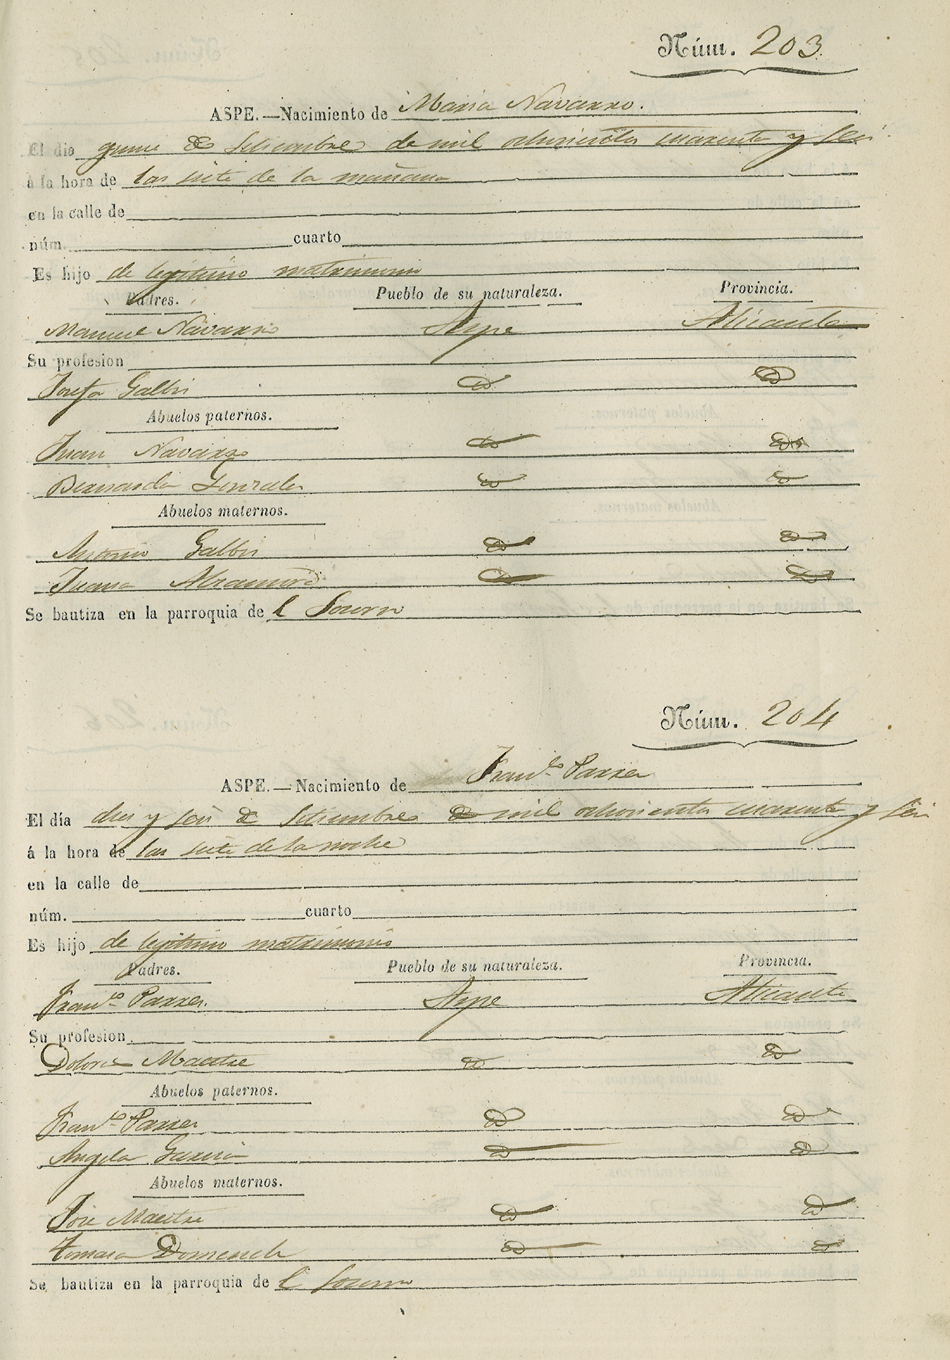 Núm. 203
ASPE.—Nacimiento de Maria Navarro.
El dia quince de Setiembre de mil ochocientos cuarenta y seis
á la hora de las siete de la mañana
en la calle de
núm. cuarto
Es hijo de legitimo matrimonio
Padres. Pueblo de su naturaleza. Provincia.
Manuel Navarro Aspe Alicante
Su profesion
Josefa Galbis id id
Abuelos paternos.
Juan Navarro id id
Bernarda Gonzales id id
Abuelos maternos.
Antonio Galbis id id
Juana id id
Se bautiza en la parroquia de l Socorro
Núm. 204
ASPE.—Nacimiento de Franco. Parrer
El día diez y seis de Setiembre de mil ochocientos cuarenta y seis
á la hora de las siete de la noche
en la calle de
núm. cuarto
Es hijo de legitimo matrimonio
Padres. Pueblo de su naturaleza. Provincia.
Franco. Parrer. Aspe Alicante
Su profesion
Dolores Maestre id id
Abuelos paternos.
Franco. Parrer id id
Angela Garcia id id
Abuelos maternos.
Jose Maestre id id
Tomasa Domenech id id
Se bautiza en la parroquia de l Socorro